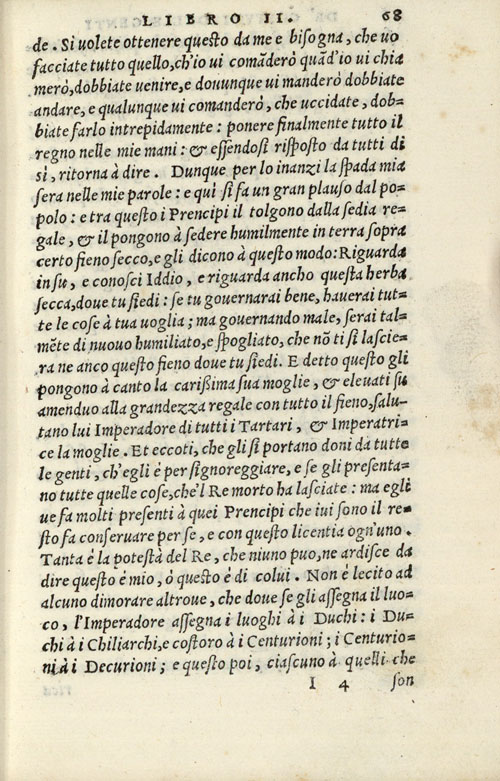 LIBRO II. 68
de. Si uolete ottenere questo da me e bisogna, che uo
facciate tutto quello, ch'io ui comãderò quãd'io ui chia
merò, dobbiate uenire, e douunque ui manderò dobbiate
andare, e qualunque ui comanderò, che uccidate, dob=
biate farlo intrepidamente: ponere finalmente tutto il
regno nelle mie mani: & essendosi risposto da tutti di
sì, ritorna à dire. Dunque per lo inanzi la spada mia
sera nelle mie parole: e quì si fa un gran plauso dal po=
polo: e tra questo i Prencipi il tolgono dalla sedia re=
gale, & il pongono à sedere humilmente in terra sopra
certo fieno secco, e gli dicono à questo modo: Riguarda
in su, e conosci Iddio, e riguarda ancho questa herba
secca, doue tu siedi: se tu gouernarai bene, hauerai tut=
te le cose à tua uoglia; ma gouernando male, serai tal=
mẽte di nuouo humiliato, e spogliato, che nõ ti si lascie=
ra ne anco questo fieno doue tu siedi. E detto questo gli
pongono à canto la carißima sua moglie, & eleuati su
amenduo alla grandezza regale con tutto il fieno, salu=
tano lui Imperadore di tutti i Tartari, & Imperatri=
ce la moglie. Et eccoti, che gli si portano doni da tutte
le genti, ch'egli è per signoreggiare, e se gli presenta=
no tutte quelle cose, che'l Re morto ha lasciate: ma egli
ue fa molti presenti à quei Prencipi che iui sono il re=
sto fa conseruare per se, e con questo licentia ogn'uno.
Tanta é la potestà del Re, che niuno puo, ne ardisce da
dire questo é mio, ò questo é di colui. Non é lecito ad
alcuno dimorare altroue, che doue se gli assegna il luo=
co, l'Imperadore assegna i luoghi à i Duchi: i Du=
chi à i Chiliarchi, e costoro à i Centurioni; i Centurio=
ni à i Decurioni; e questo poi, ciascuno à quelli che
I 4 son